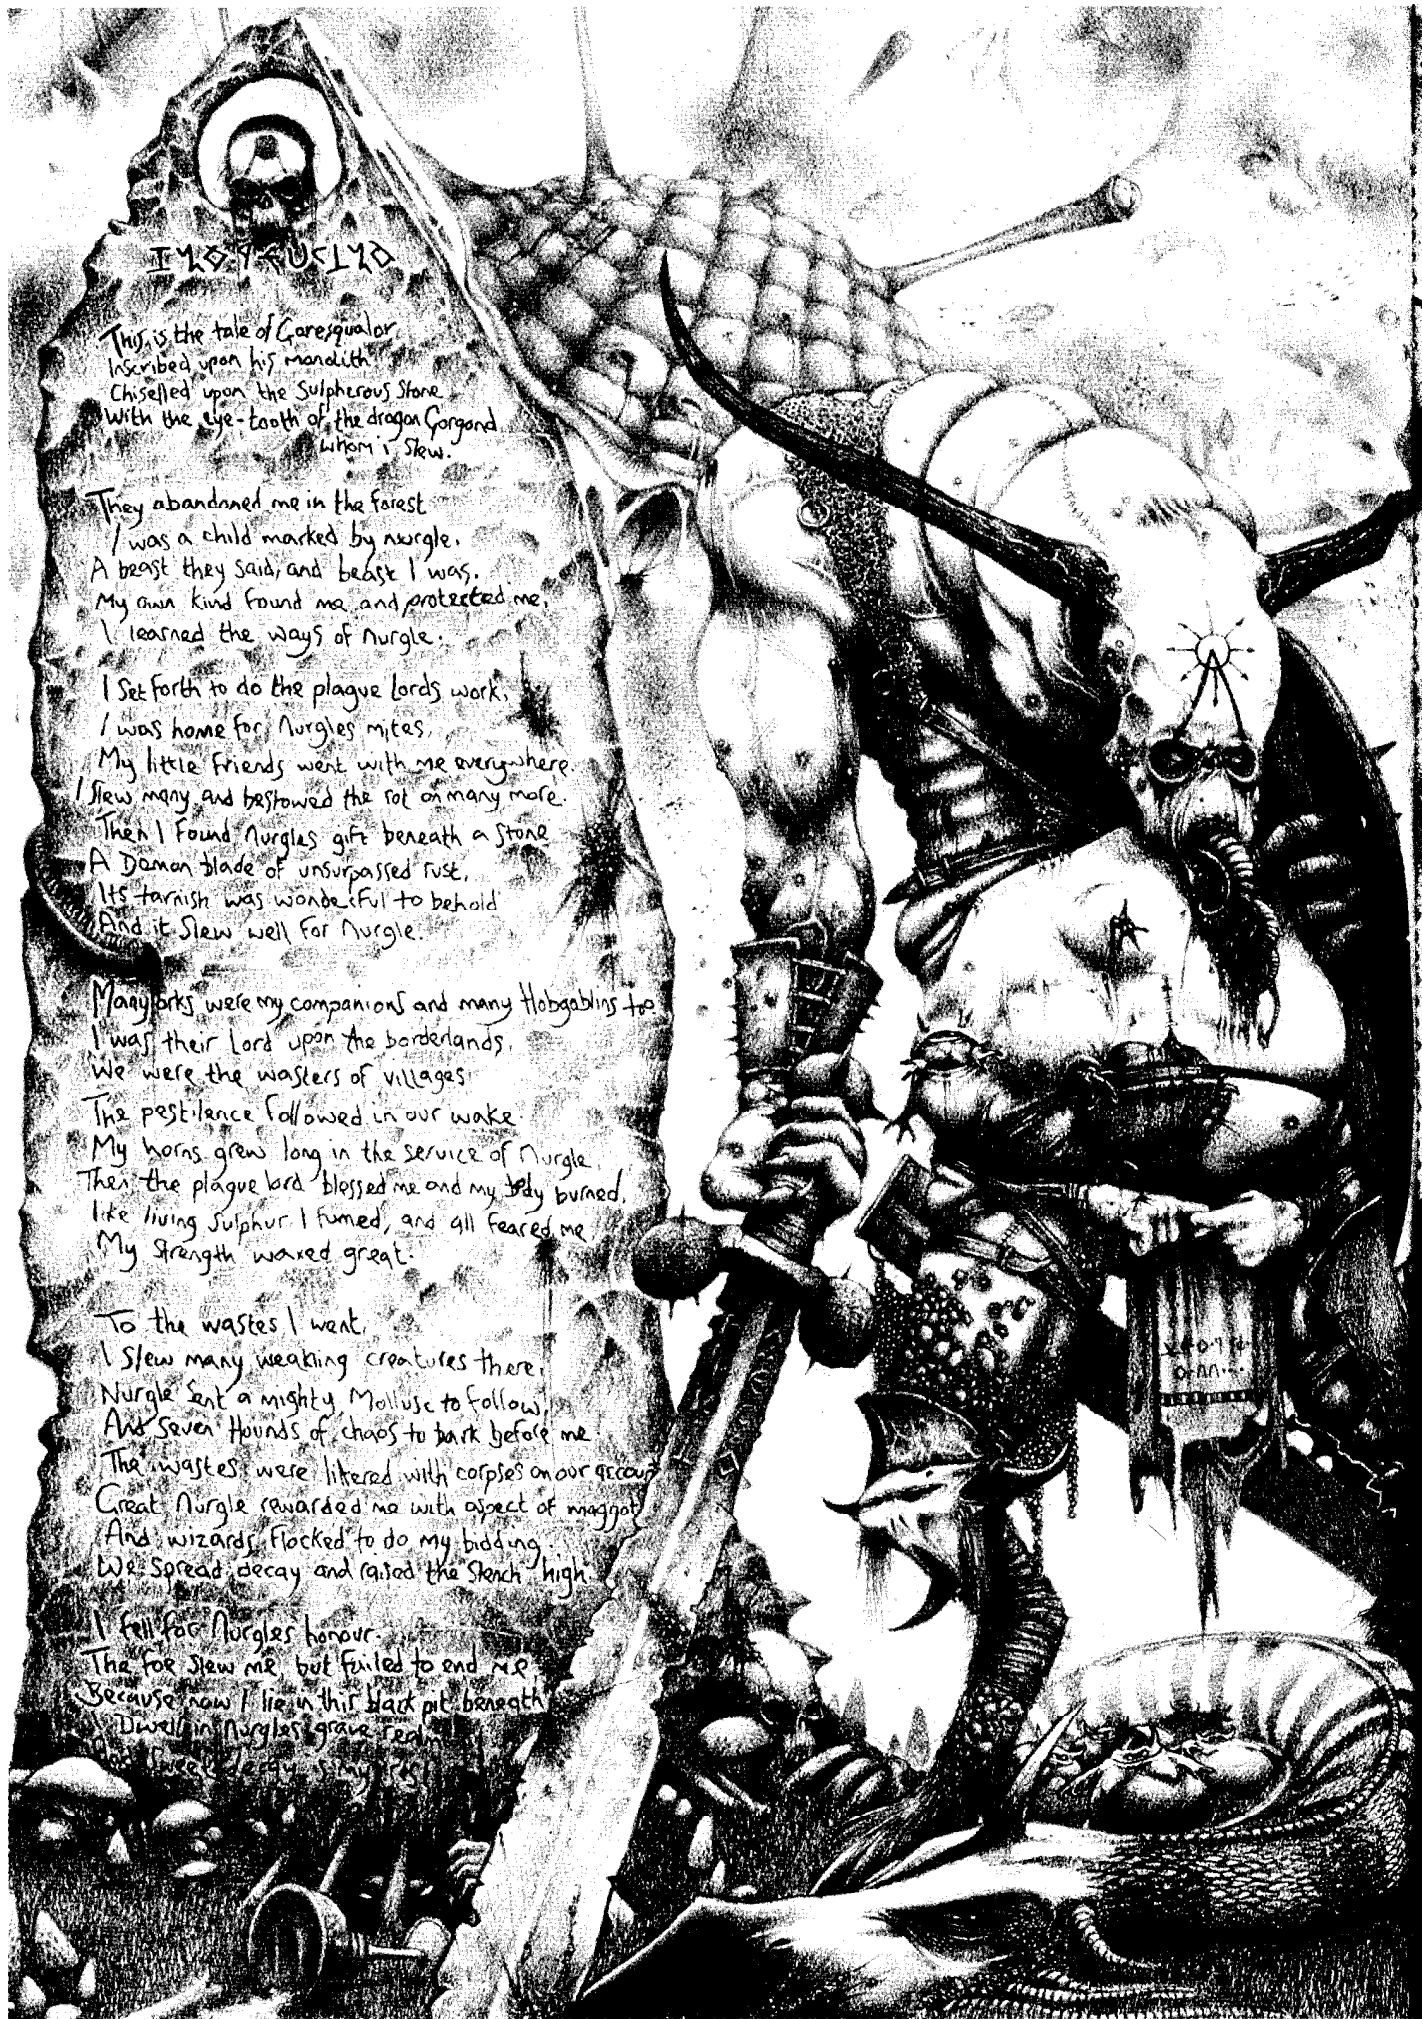 This is the tale of Goresqualor
Inscribed upon his monolith
Chiselled upon the Sulpherous Stone
With the eye-tooth of the dragon Gorgond
whom i slew.
They abandoned me in the forest
I was a child marked by nurgle.
A beast they said, and beast I was.
My own kind found me and protected me,
I learned the ways of Nurgle.
I Set forth to do the plague lords work,
I was home for Nurgles mites,
My little friends went with me everywhere.
I slew many and bestowed the rot on many more.
Then I found Nurgles gift beneath a stone
A Demon blade of unsurpassed rust,
Its tarnish was wonderful to behold
And it Slew well for Nurgle.
Many orks were my companions and many Hobgoblins too
I was their Lord upon the borderlands,
We were the wasters of villages
The pestilence followed in our wake.
My horns grew long in the service of Nurgle,
Then the plague lord blessed me and my body burned,
like living Sulphur I fumed, and all feared me
My Strength waxed great.
To the wastes I went,
I Slew many weakling creatures there,
Nurgle Sent a mighty Mollusc to follow,
And Seven Hounds of chaos to bark before me
The wastes were littered with corpses on our account
Great Nurgle rewarded me with aspect of maggot
And wizards flocked to do my bidding.
We Spread decay and raised the Stench high.
I fell for Nurgles honour.
The foe Slew me, but failed to end me
Because now I lie in this dark pit beneath
I Dwell in Nurgles grave realm
And Sweet decay is my